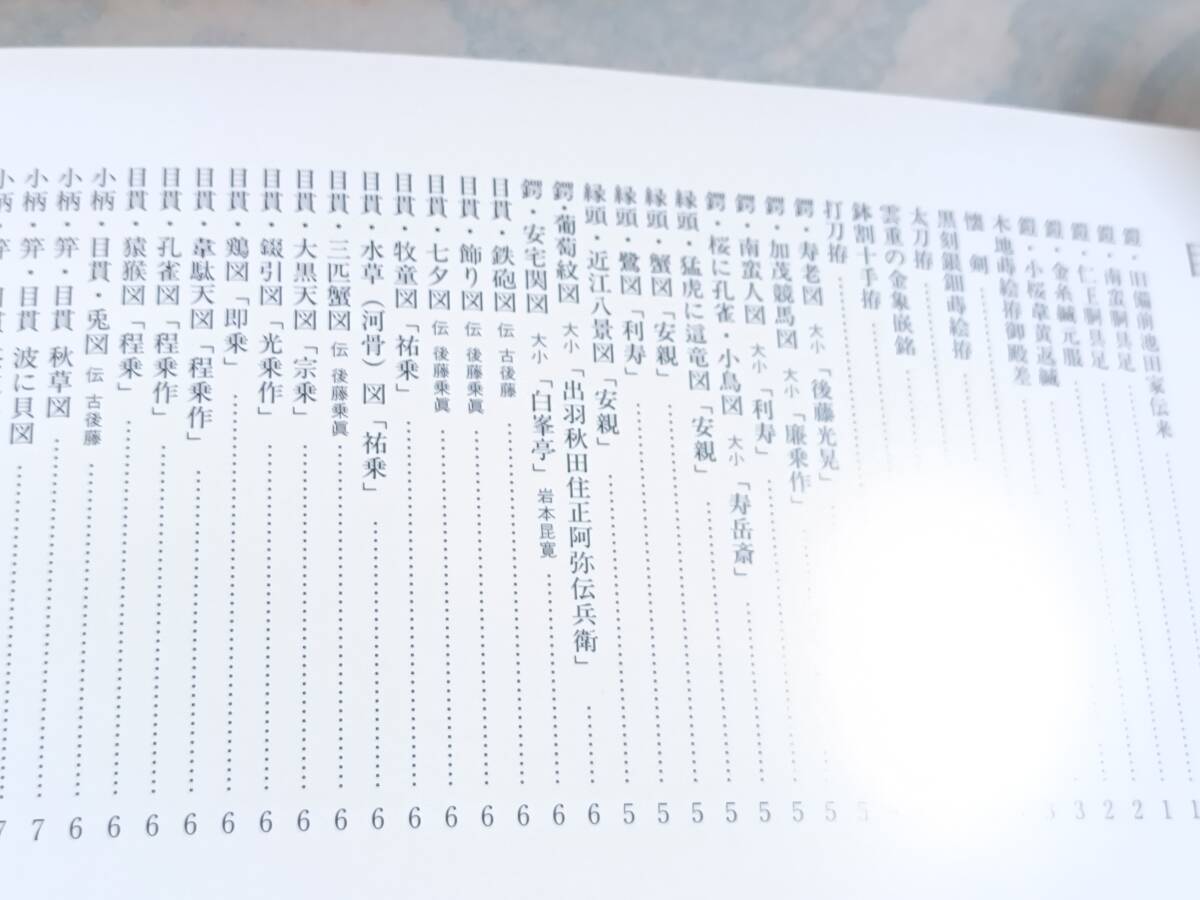 鎧・旧備前池田家伝来
鎧・南蛮胴具足
鎧・仁王胴具足
鎧・金糸縅元服
鎧・小桜韋黄返縅
木地蒔絵拵御殿差
懐　剣
黒刻銀鈿蒔絵拵
太刀拵
雲重の金象嵌銘
鉢割十手拵
打刀拵
鍔・寿老図　大小「後藤光晃」……5
鍔・加茂競馬図　大小「廉乗作」……5
鍔・南蛮人図　大小「利寿」……5
鍔・桜に孔雀・小鳥図　大小「寿岳斎」……5
縁頭・猛虎に這竜図「安親」……5
縁頭・蟹図「安親」……5
縁頭・鷺図「利寿」……5
縁頭・近江八景図「安親」……6
鍔・葡萄紋図　大小「出羽秋田住正阿弥伝兵衛」……6
鍔・安宅関図　大小「白峯亭」岩本昆寛……6
目貫・鉄砲図　伝 古後藤……6
目貫・飾り図　伝 後藤乗眞……6
目貫・七夕図　伝 後藤乗眞……6
目貫・牧童図「祐乗」……6
目貫・水草（河骨）図「祐乗」……6
目貫・三匹蟹図　伝 後藤乗眞……6
目貫・大黒天図「宗乗」……6
目貫・錣引図「光乗作」……6
目貫・鶏図「即乗」……6
目貫・韋駄天図「程乗作」……6
目貫・孔雀図「程乗作」……6
目貫・猿猴図「程乗」……6
小柄・目貫・兎図　伝 古後藤……6
小柄・笄・目貫　秋草図……6
小柄・笄・目貫　波に貝図……7
小柄・笄